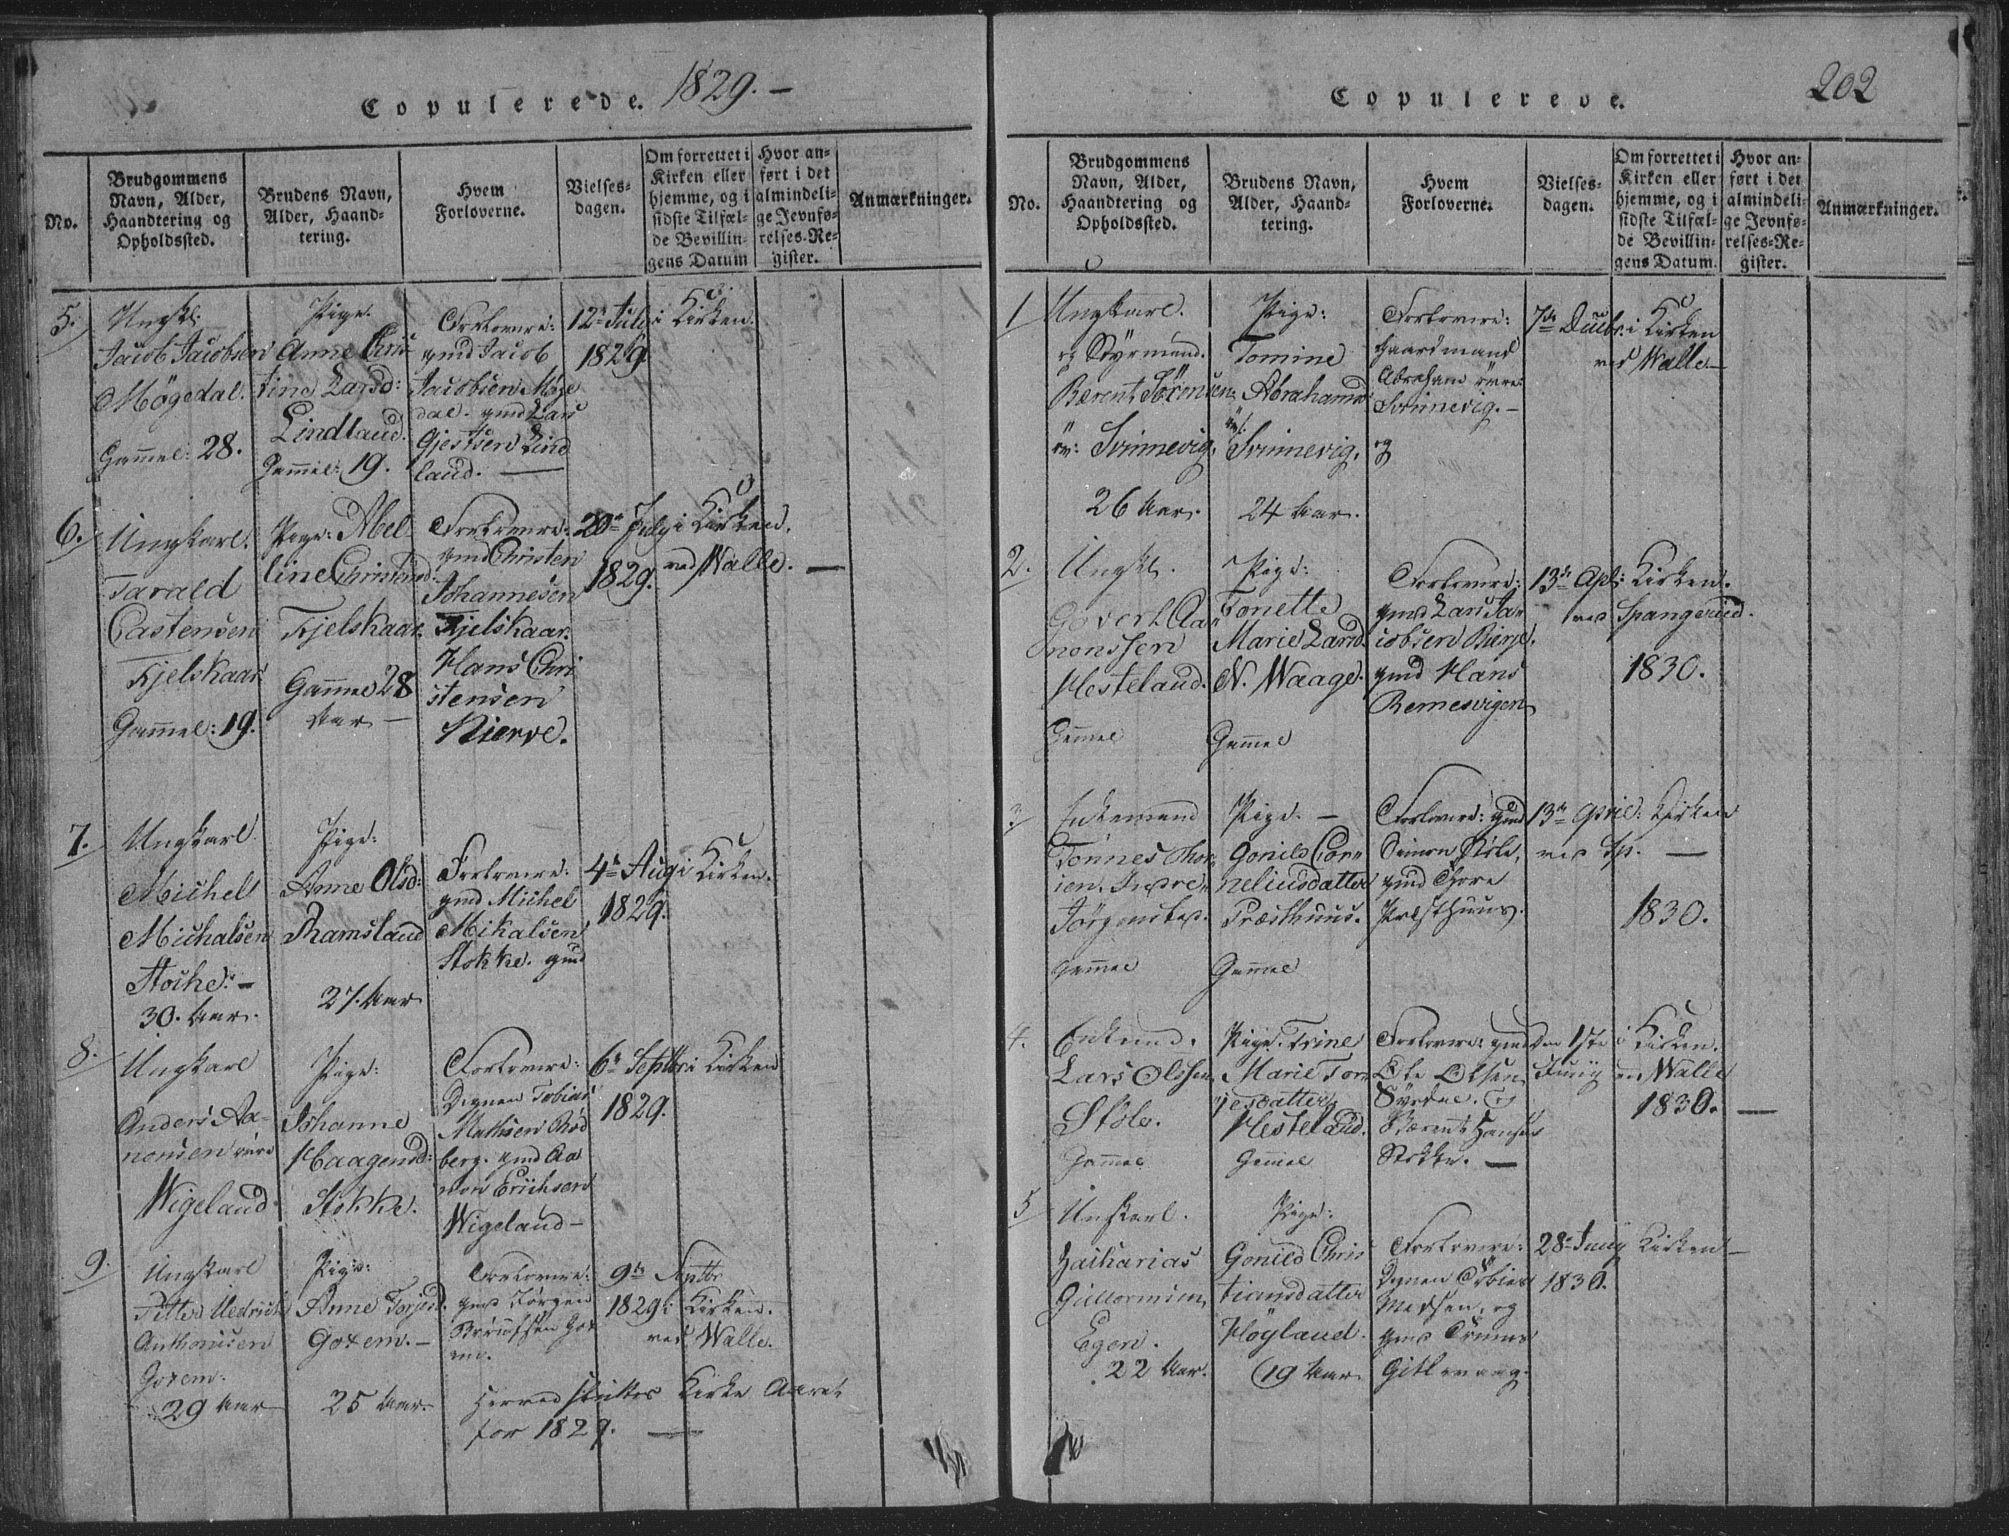 Copulerede. 1829. —
No.
Brudgommens Navn, Alder, Haandtering og Opholdssted.
Brudens Navn, Alder, Haandtering.
Hvem Forloverne.
Vielsesdagen.
Om forrettet i Kirken eller hjemme, og i sidste Tilfælde Bevillingens Datum
Hvor anført i det almindelige Jevnførelses-Register.
Anmærkninger.
5. Ungk:
Jacob Jacobsen
Møgedal.
Gammel: 28.
Pige.
Anne Chris
tine Larsd:
Lindland.
Gammel: 19.
Forlovere:
gmd Jacob
Jacobsen Møge
dal. gmd Lars
Gjertsen Lind
land. —
12te July
1829.
i Kirken.
6. Ungkarl.
Tarald
Castensen
Fjelskaar.
Gammel: 19.
Pige: Abel
line Christend:
Fjelskaar.
Gammel 28
Aar —
Forlovere:
gmd Christen
Johannesen
Fjelskaar.
Hans Chri
stensen
Kierve.
20de July
1829.
i Kirken.
ved Walle. —
7. Ungkarl.
Michel
Michalsen
Stocke: —
30. Aar.
Pige:
Anne Olsd:
Ramsland
27. Aar
Forlovere:
gmd Michel
Mikalsen
Stokke. gmd
4de Aug
1829.
i Kirken.
8. Ungkarl
Anders Aa-
nonsen
Wigeland
Pige:
Johanne
Haagensd:
Stokke.
Forlovere:
Degnen Tobias
Mathisen Rød
berg. gmd Aa
non Erichsen
Wigeland —
6te Septbr
1829.
i Kirken
9. Ungkarl
Anthonisen
Goxem.
29 Aar
Pige:
Anne Torjesd.
Goxem. —
25 Aar.
Forlovere:
gmd Jørgen
9de Septbr
1829.
i Kirken.
ved Walle.
Kirke Aaret
for 1829. —
Copulerede. 202
No.
Brudgommens Navn, Alder, Haandtering og Opholdssted.
Brudens Navn, Alder, Haandtering.
Hvem Forloverne.
Vielsesdagen.
Om forrettet i Kirken eller hjemme, og i sidste Tilfælde Bevillingens Datum.
Hvor anført i det almindelige Jevnførelses-Register.
Anmærkninger.
1 Ungkarl.
og Styrmand.
Bærent Sørensen
Svinnevig.
26 Aar.
Pige:
Tomine
Abrahamsd
Svinnevig.
24 Aar.
Forlovere:
Gaardmand
Abraham
Svinnevig. —
og
7de
i Kirken
ved Walle —
2. Ungk.
Govert Aa
nonssen
Hesteland.
Gammel
Pige:
Tonette
Marie Larsd.
N. Waage.
Gammel
Forlovere:
gmd Lars Ja-
cobsen Bierge.
gmd Hans
Remesvigen
13de Apl:
Kirken.
ved Spangereid.
1830.
3 Enkemand
Tønnes Thor
Gammel
Pige. —
Gonild Cor-
neliusdatter
Præsthuus.
Gammel
Forlovere: gmd
Simon Skole,
gmd Thore
Presthuus.
13de April
Kirken
ved Sp. —
1830.
4. Enkemd.
Lars Olssen
Skole.
Gammel
Pige. Trine
Marie Tor-
jesdatter
Hesteland.
Gammel
Forlovere: gmd
Ole Olsen
Syrdal. og
Bærent Hansen
Stokke. —
den 1ste
Juny
i Kirken.
Walle
1830. —
5 Ungkarl.
Zacharias
Egen.
22 Aar.
Pige:
Gonild Chris
tiansdatter
Høyland.
19 Aar
Forlovere:
Degnen Tobias
Madsen, og
gmd
28de Juny
1830.
Kirken —